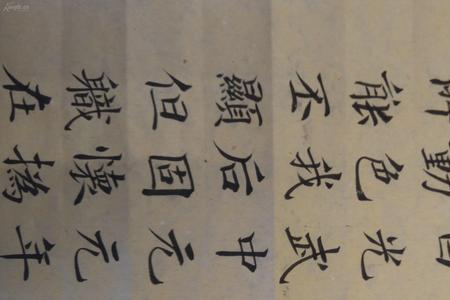 動
能色光
丕我武
顯后中
但固元
職懷元
在撝年